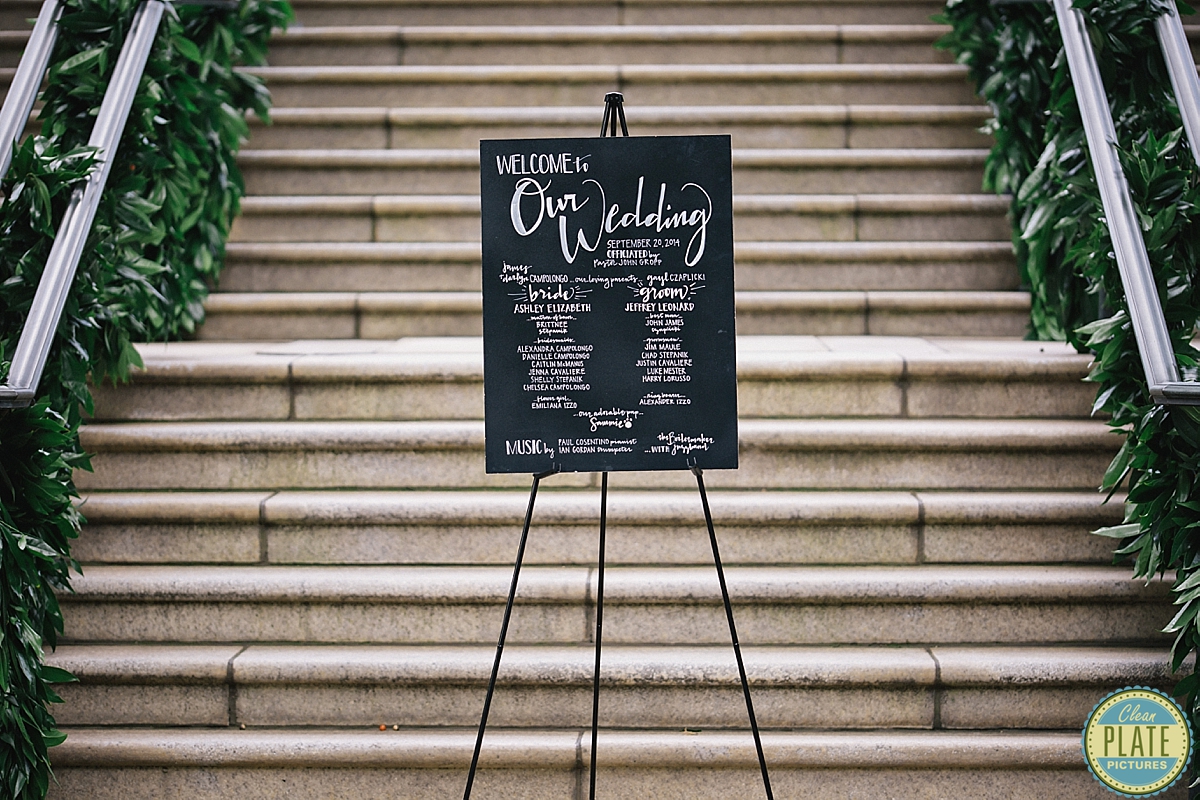 WELCOME to
Our
Wedding
SEPTEMBER 20, 2014
OFFICIATED by
Pastor JOHN GROPP
James
CAMPOLONGO ...our loving parents... gayl CZAPLICKI
bride groom
ASHLEY ELIZABETH JEFFREY LEONARD
...matron of honor... ...best man...
BRITTNEE JOHN JAMES
Stepanik Czaplicki
...bridesmaids... ...groomsmen...
ALEXANDRA CAMPOLONGO JIM MAULE
DANIELLE CAMPOLONGO CHAD STEPANIK
CAITLIN McMANUS JUSTIN CAVALIERE
JENNA CAVALIERE LUKE MESTER
SHELLY STEPANIK HARRY LORUSSO
CHELSEA CAMPOLONGO
...flower girl... ...ring bearer...
EMILIANA IZZO ALEXANDER IZZO
...our adorable pup...
Sammie
MUSIC by PAUL COSENTINO pianist the Boilermaker
IAN GORDAN trumpeter ...WITH jazzband
Clean
PLATE
PICTURES